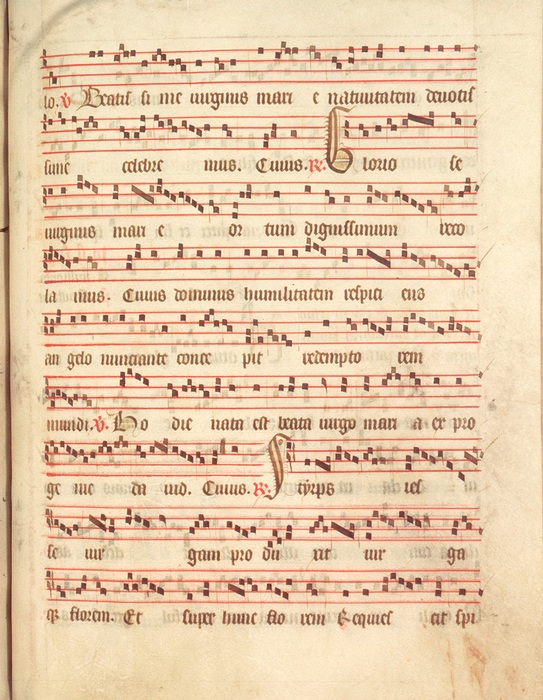 lo. V Beatissime uirginis mari e natiuitatem deuotis
sime celebre mus. Cuius. R. Glorio se
uirginis mari e or tum dignissimum reco
la mus. Cuius dominus humilitatem respici ens
an gelo nunciante conce pit redempto rem
mundi. V. Ho die nata est beata uirgo mari a ex pro
ge nie da uid. Cuius. R. Styrps ies
se uir gam pro du xit uir ga
q florem. Et super hunc flo rem Requies cit spi